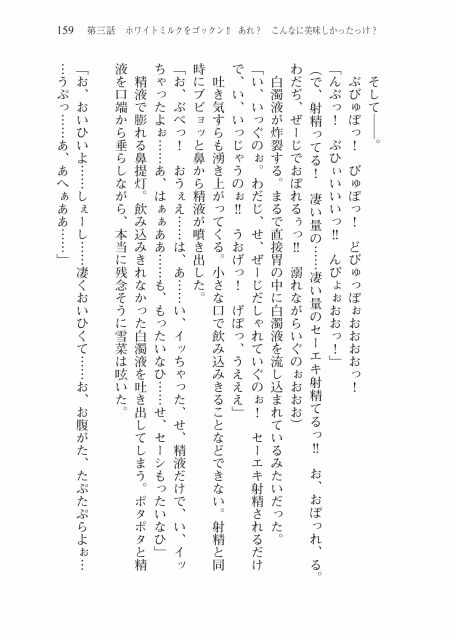 159　第三話　ホワイトミルクをゴックン‼　あれ？　こんなに美味しかったっけ？
そして――。
ぶびゅぼっ！　びゅぼっ！　どびゅっぼぉおおおおっ！
「んぶっ！　ぶひぃいいいっ‼　んぴょぉおおっ！」
（で、射精ってる！　凄い量の……凄い量のセーエキ射精てるっ‼　お、おぼっれ、る。
わだぢ、ぜーじでおぼれるぅっ‼　溺れながらいぐのぉおおお）
白濁液が炸裂する。まるで直接胃の中に白濁液を流し込まれているみたいだった。
「い、いっぐのぉ。わだじ、せ、ぜーじだしゃれていぐのぉ！　セーエキ射精されるだけ
で、い、いっじゃうのぉ‼　うおげっ！　げぼっ、うえええ」
吐き気すらも湧き上がってくる。小さな口で飲み込みきることなどできない。射精と同
時にブビョッと鼻から精液が噴き出した。
「お、ぶべっ！　おうぇえ……は、あ……い、イッちゃった、せ、精液だけで、い、イッ
ちゃったよぉ……あ、はぁぁああ……も、もったいなひ……せ、セーシもったいなひ」
精液で膨れる鼻提灯。飲み込みきれなかった白濁液を吐き出してしまう。ボタボタと精
液を口端から垂らしながら、本当に残念そうに雪菜は呟いた。
「お、おいひいよ……しぇーし……凄くおいひくて……お、お腹がた、たぷたぷらよぉ…
…うぷっ……あ、あへぁああ……」